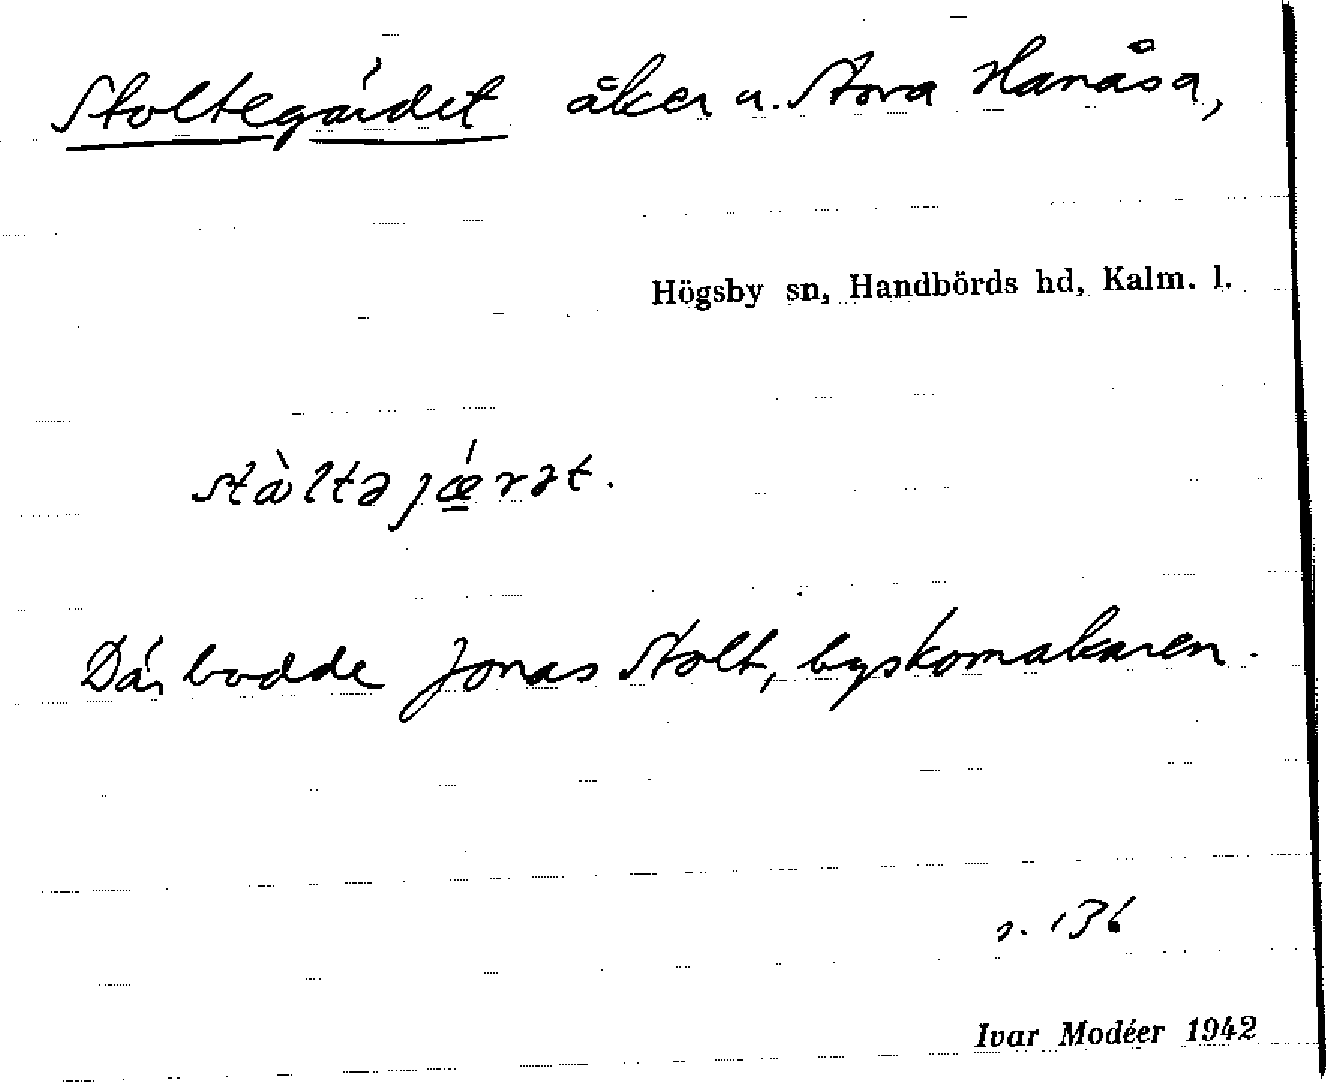 Stoltegärdet åker u. Stora Hanåsa,
Högsby sn, Handbörds hd, Kalm. l.
Där bodde Jonas Stolt, byskomakaren.
s. 136
Ivar Modéer 1942